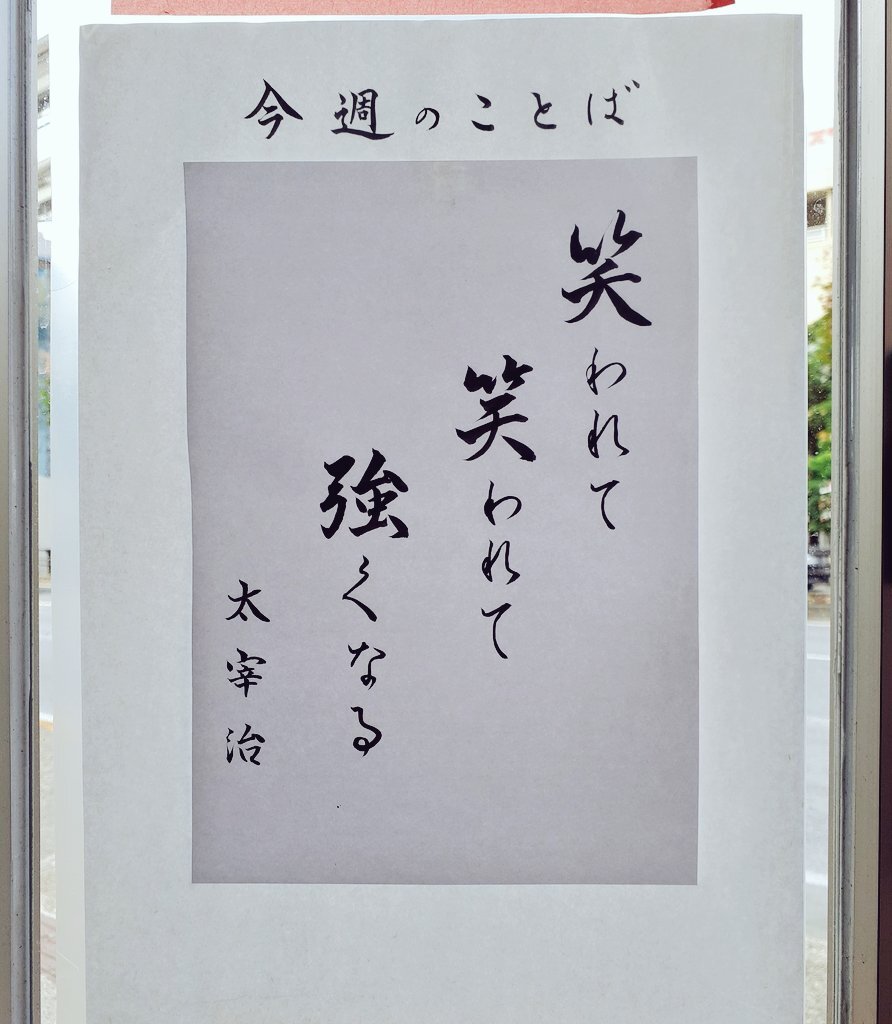 今週のことば
笑われて
笑われて
強くなる
太宰治